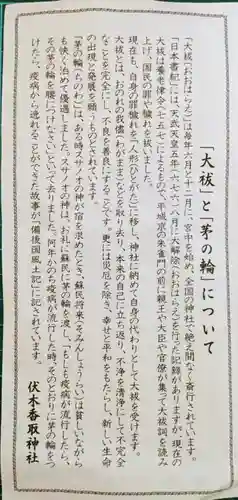 「大祓」と「茅の輪」について
「大祓（おおはらえ）」は毎年六月と十二月に、宮中を始め、全国の神社で絶え間なく斎行されています。
「日本書紀」には、天武天皇五年（六七六）八月に大解除（おおはらえ）を行った記録がありますが、現在の
大祓は養老律令（七五七）によるもので、平城京の朱雀門の前に親王や大臣や官僚が集って大祓詞を読み
上げ、国民の罪や穢れを祓いました。
現在も、自身の罪穢れを「人形（ひとがた）」に移し、神社に納めて自身の代わりとして大祓を受けます。
大祓とは、おのれの我儘（わがまま）などを取り去り、本来の自己に立ち返り、不浄を清浄にして不完全
なことを完全にし、不良を善良にすることです。更には災厄を除き、幸せと平和をもたらし、新しい生命
の出現と発展を願うものとされています。
「茅の輪（ちのわ）」は、ある時スサノオの神が宿を求めたとき、蘇民将来（そみんしょうらい）は貧しいながら
も快く泊めて優遇しました。スサノオの神は、お礼に蘇民に茅の輪を渡し、「もしも疫病が流行したら、
その茅の輪を腰につけなさい」といって去りました。何年かのち疫病が流行した時、そのとおりに茅の輪をつ
けたら、疫病から逃れることができた故事が「備後国風土記」に記されています。
伏木香取神社